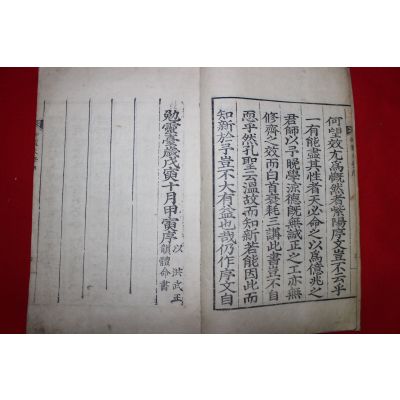 何望效尤爲慨然者紫陽序文豈不云乎
一有能盡其性者天必命之以爲億兆之
君師以予晚學涼德既無誠正之工亦無
修齊之效而白首衰耗三講此書豈不自
恧乎然孔聖云溫故而知新若能因此而
知新於予豈不大有益也哉仍作序文自
勉靈臺歲戊寅十月甲寅序
以 洪武正
韻體命書